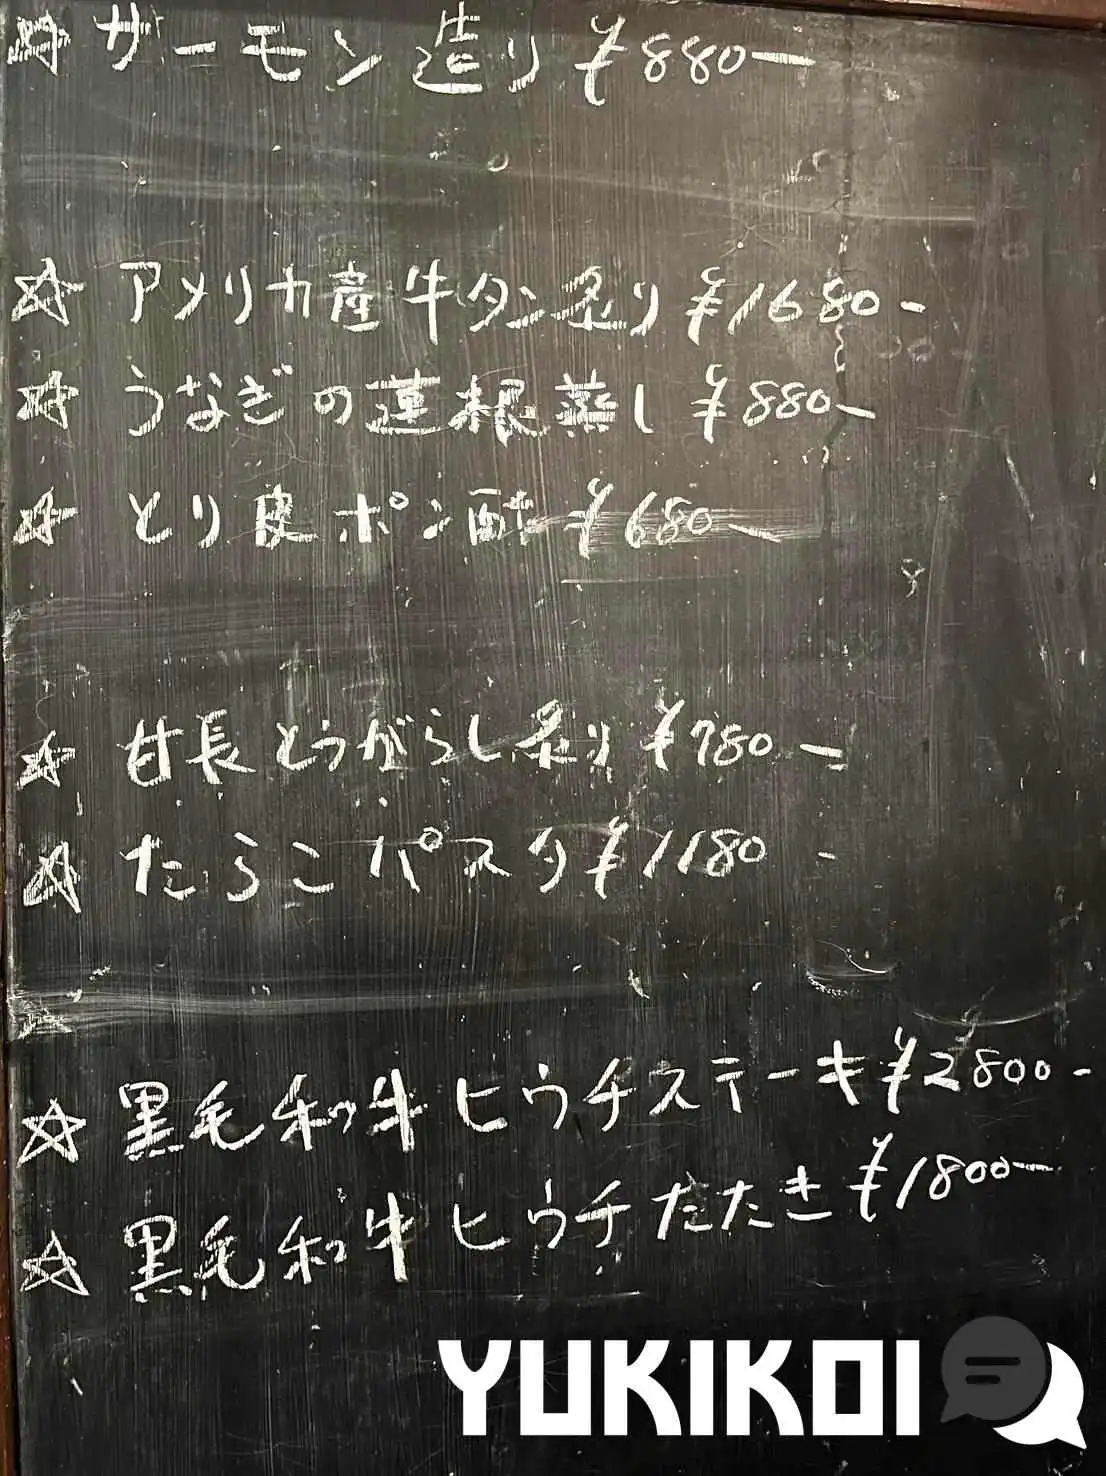 ☆ サーモン造り ¥880ー
☆ アメリカ産牛タン炙り ¥1680-
☆ うなぎの蓮根蒸し ¥880-
☆ とり皮ポン酢 ¥680-
☆ 甘長とうがらし炙り ¥780-
☆ たらこパスタ ¥1180-
☆ 黒毛和牛ヒウチステーキ ¥2800-
☆ 黒毛和牛ヒウチたたき ¥1800-
YUKIKOI